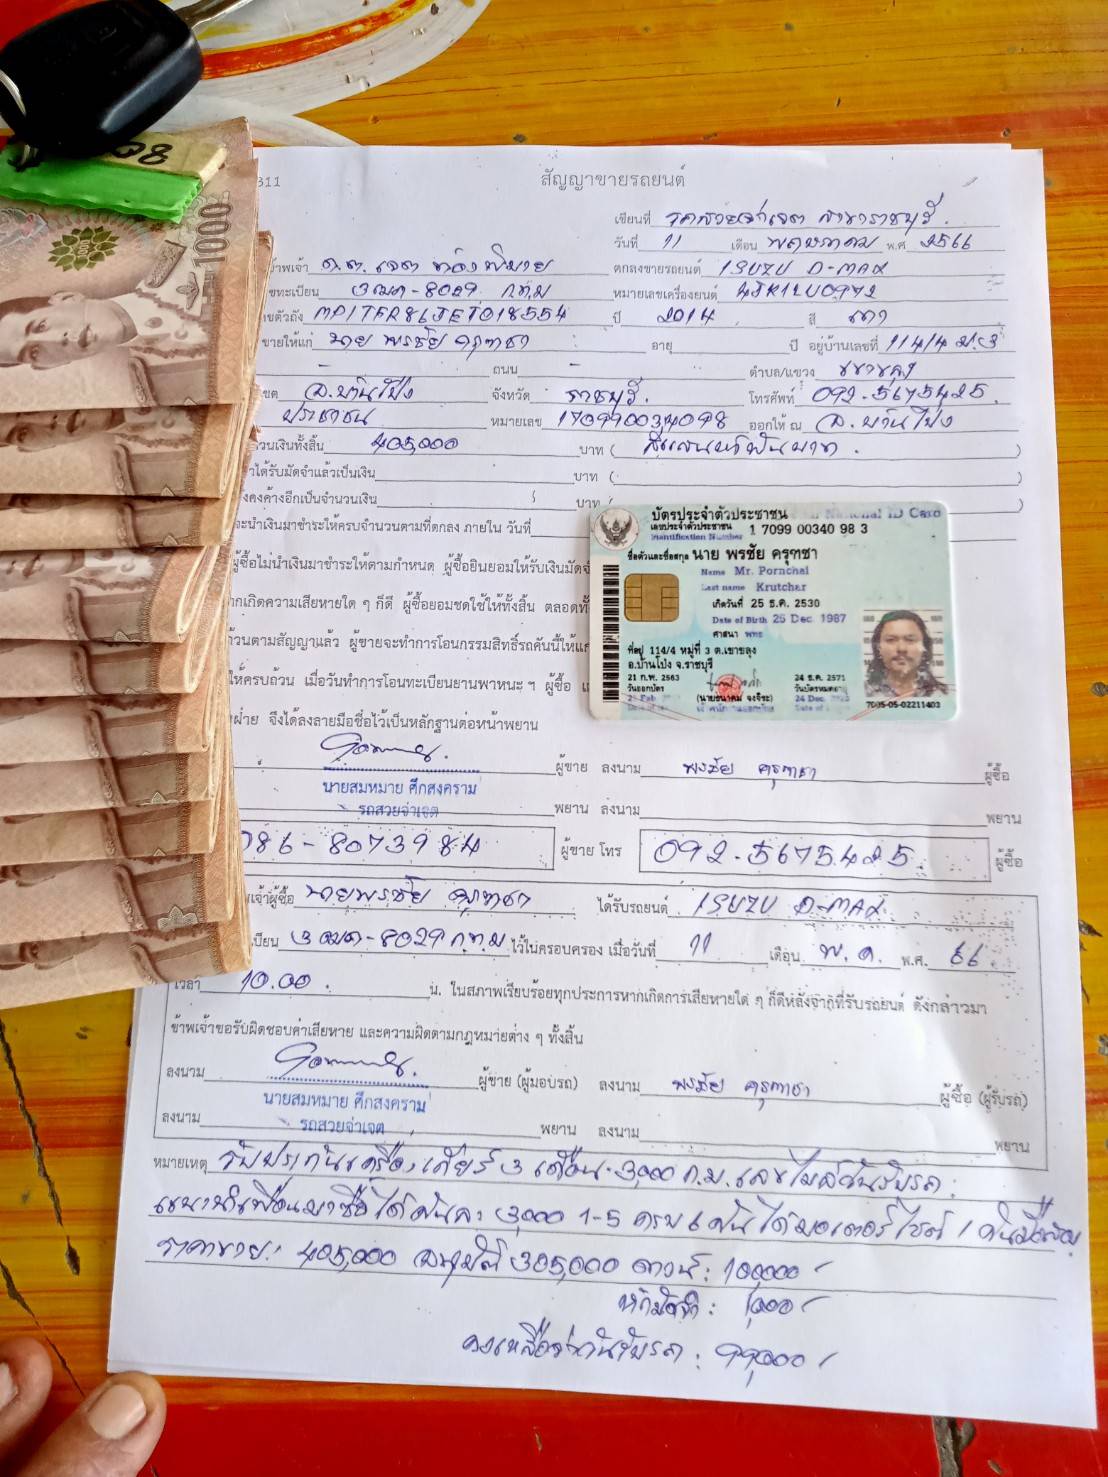 311
สัญญาขายรถยนต์
เขียนที่ รถสวยจ่าเจต สาขาราชบุรี
วันที่ 11 เดือน พฤษภาคม พ.ศ 2566
ด.ต. เจต ตกลงขายรถยนต์ ISUZU D-MAX
8029 ก.ท.ม หมายเลขเครื่องยนต์ 4JK1LU0972
ปี 2014 สี เทา
ขายให้แก่ นาย พรชัย ครุฑชา อายุ ปี อยู่บ้านเลขที่ 114/4 ม.3
- ถนน - ตำบล/แขวง เขาขลุง
อ.บ้านโป่ง จังหวัด ราชบุรี โทรศัพท์ 092-5675425
ประชาชน หมายเลข ออกให้ ณ อ.บ้านโป่ง
วนเงินทั้งสิ้น 405,000 บาท ( สี่แสนห้าพันบาท )
ได้รับมัดจำแล้วเป็นเงิน บาท ( )
คงค้างอีกเป็นจำนวนเงิน บาท (
จะนำเงินมาชำระให้ครบจำนวนตามที่ตกลง ภายใน วันที่
ผู้ซื้อไม่นำเงินมาชำระให้ตามกำหนด ผู้ซื้อยินยอมให้รับเงินมัดจำ
ากเกิดความเสียหายใด ๆ ก็ดี ผู้ซื้อยอมชดใช้ให้ทั้งสิ้น ตลอดทั้
ถ้วนตามสัญญาแล้ว ผู้ขายจะทำการโอนกรรมสิทธิ์รถคันนี้ให้แก่
ให้ครบถ้วน เมื่อวันทำการโอนทะเบียนยานพาหนะ ฯ ผู้ซื้อ
ฝ่าย จึงได้ลงลายมือชื่อไว้เป็นหลักฐานต่อหน้าพยาน
บัตรประจำตัวประชาชน Thai National ID Card
เลขประจำตัวประชาชน 1 7099 00340 98 3
Identification Number
ชื่อตัวและชื่อสกุล นาย พรชัย ครุฑชา
Name Mr. Pornchai
Last name Krutchar
เกิดวันที่ 25 ธ.ค. 2530
Date of Birth 25 Dec. 1987
ศาสนา พุทธ
ที่อยู่ 114/4 หมู่ที่ 3 ต.เขาขลุง
อ.บ้านโป่ง จ.ราชบุรี
21 ก.พ. 2563 24 ธ.ค. 2571
วันออกบัตร วันบัตรหมดอายุ
7005-05-02211403
ผู้ขาย ลงนาม พรชัย ครุฑชา ผู้ซื้อ
นายสมหมาย ศึกสงคราม
รถสวยจ่าเจต พยาน ลงนาม พยาน
086-8073984 ผู้ขาย โทร 092-5675425 ผู้ซื้อ
เจ้าผู้ซื้อ นายพรชัย ครุฑชา ได้รับรถยนต์ ISUZU D-MAX
8029 ก.ท.ม ไว้ในครอบครอง เมื่อวันที่ 11 เดือน พ.ค. พ.ศ. 66
เวลา 10.00 น. ในสภาพเรียบร้อยทุกประการหากเกิดการเสียหายใด ๆ ก็ดีหลังจากที่รับรถยนต์ ดังกล่าวมา
ข้าพเจ้าขอรับผิดชอบค่าเสียหาย และความผิดตามกฎหมายต่าง ๆ ทั้งสิ้น
ลงนาม ผู้ขาย (ผู้มอบรถ) ลงนาม พรชัย ครุฑชา ผู้ซื้อ (ผู้รับรถ)
นายสมหมาย ศึกสงคราม
ลงนาม รถสวยจ่าเจต พยาน ลงนาม พยาน
หมายเหตุ รับประกันเครื่อง,เกียร์ 3 เดือน 3,000 ก.ม. เลขไมล์วันรับรถ
แนะนำเพื่อนมาซื้อได้คันละ 3,000 1-5 ครบ 6 คันได้มอเตอร์ไซค์ 1 คัน
ราคาขาย: 405,000 อนุมัติ 305,000 ดาวน์: 100,000
หักมัดจำ: 1,000
คงเหลือจ่ายวันรับรถ: 99,000
1000